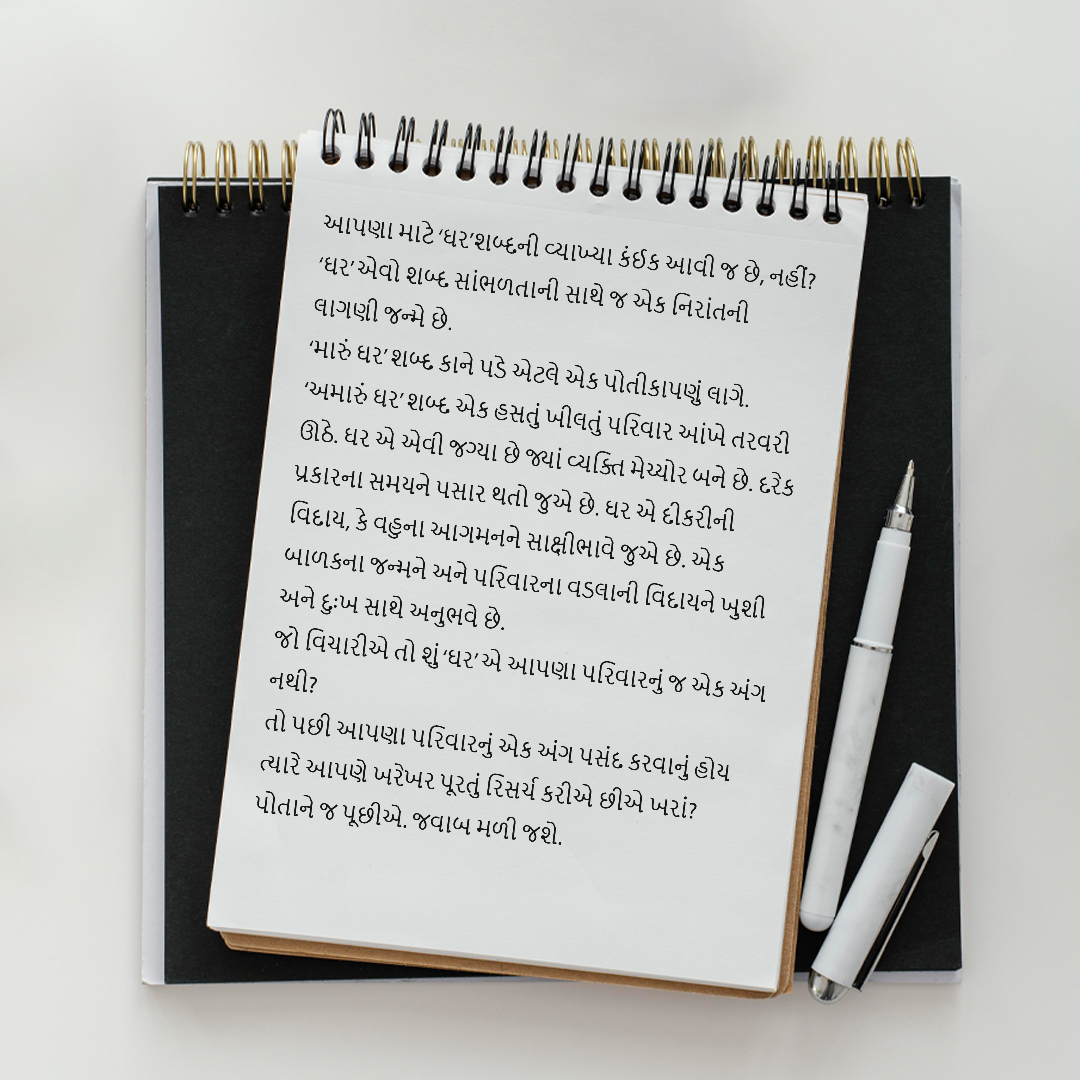 આપણા માટે ‘ઘર’શબ્દની વ્યાખ્યા કંઈક આવી જ છે, નહીં?
‘ઘર’ એવો શબ્દ સાંભળતાની સાથે જ એક નિરાંતની
લાગણી જન્મે છે.
‘મારું ઘર’ શબ્દ કાને પડે એટલે એક પોતીકાપણું લાગે.
‘અમારું ઘર’ શબ્દ એક હસતું ખીલતું પરિવાર આંખે તરવરી
ઊઠે. ઘર એ એવી જગ્યા છે જ્યાં વ્યક્તિ મેચ્યોર બને છે. દરેક
પ્રકારના સમયને પસાર થતો જુએ છે. ઘર એ દીકરીની
વિદાય, કે વહુના આગમનને સાક્ષીભાવે જુએ છે. એક
બાળકના જન્મને અને પરિવારના વડલાની વિદાયને ખુશી
અને દુઃખ સાથે અનુભવે છે.
જો વિચારીએ તો શું ‘ઘર’ એ આપણા પરિવારનું જ એક અંગ
નથી?
તો પછી આપણા પરિવારનું એક અંગ પસંદ કરવાનું હોય
ત્યારે આપણે ખરેખર પૂરતું રિસર્ચ કરીએ છીએ ખરાં?
પોતાને જ પૂછીએ. જવાબ મળી જશે.